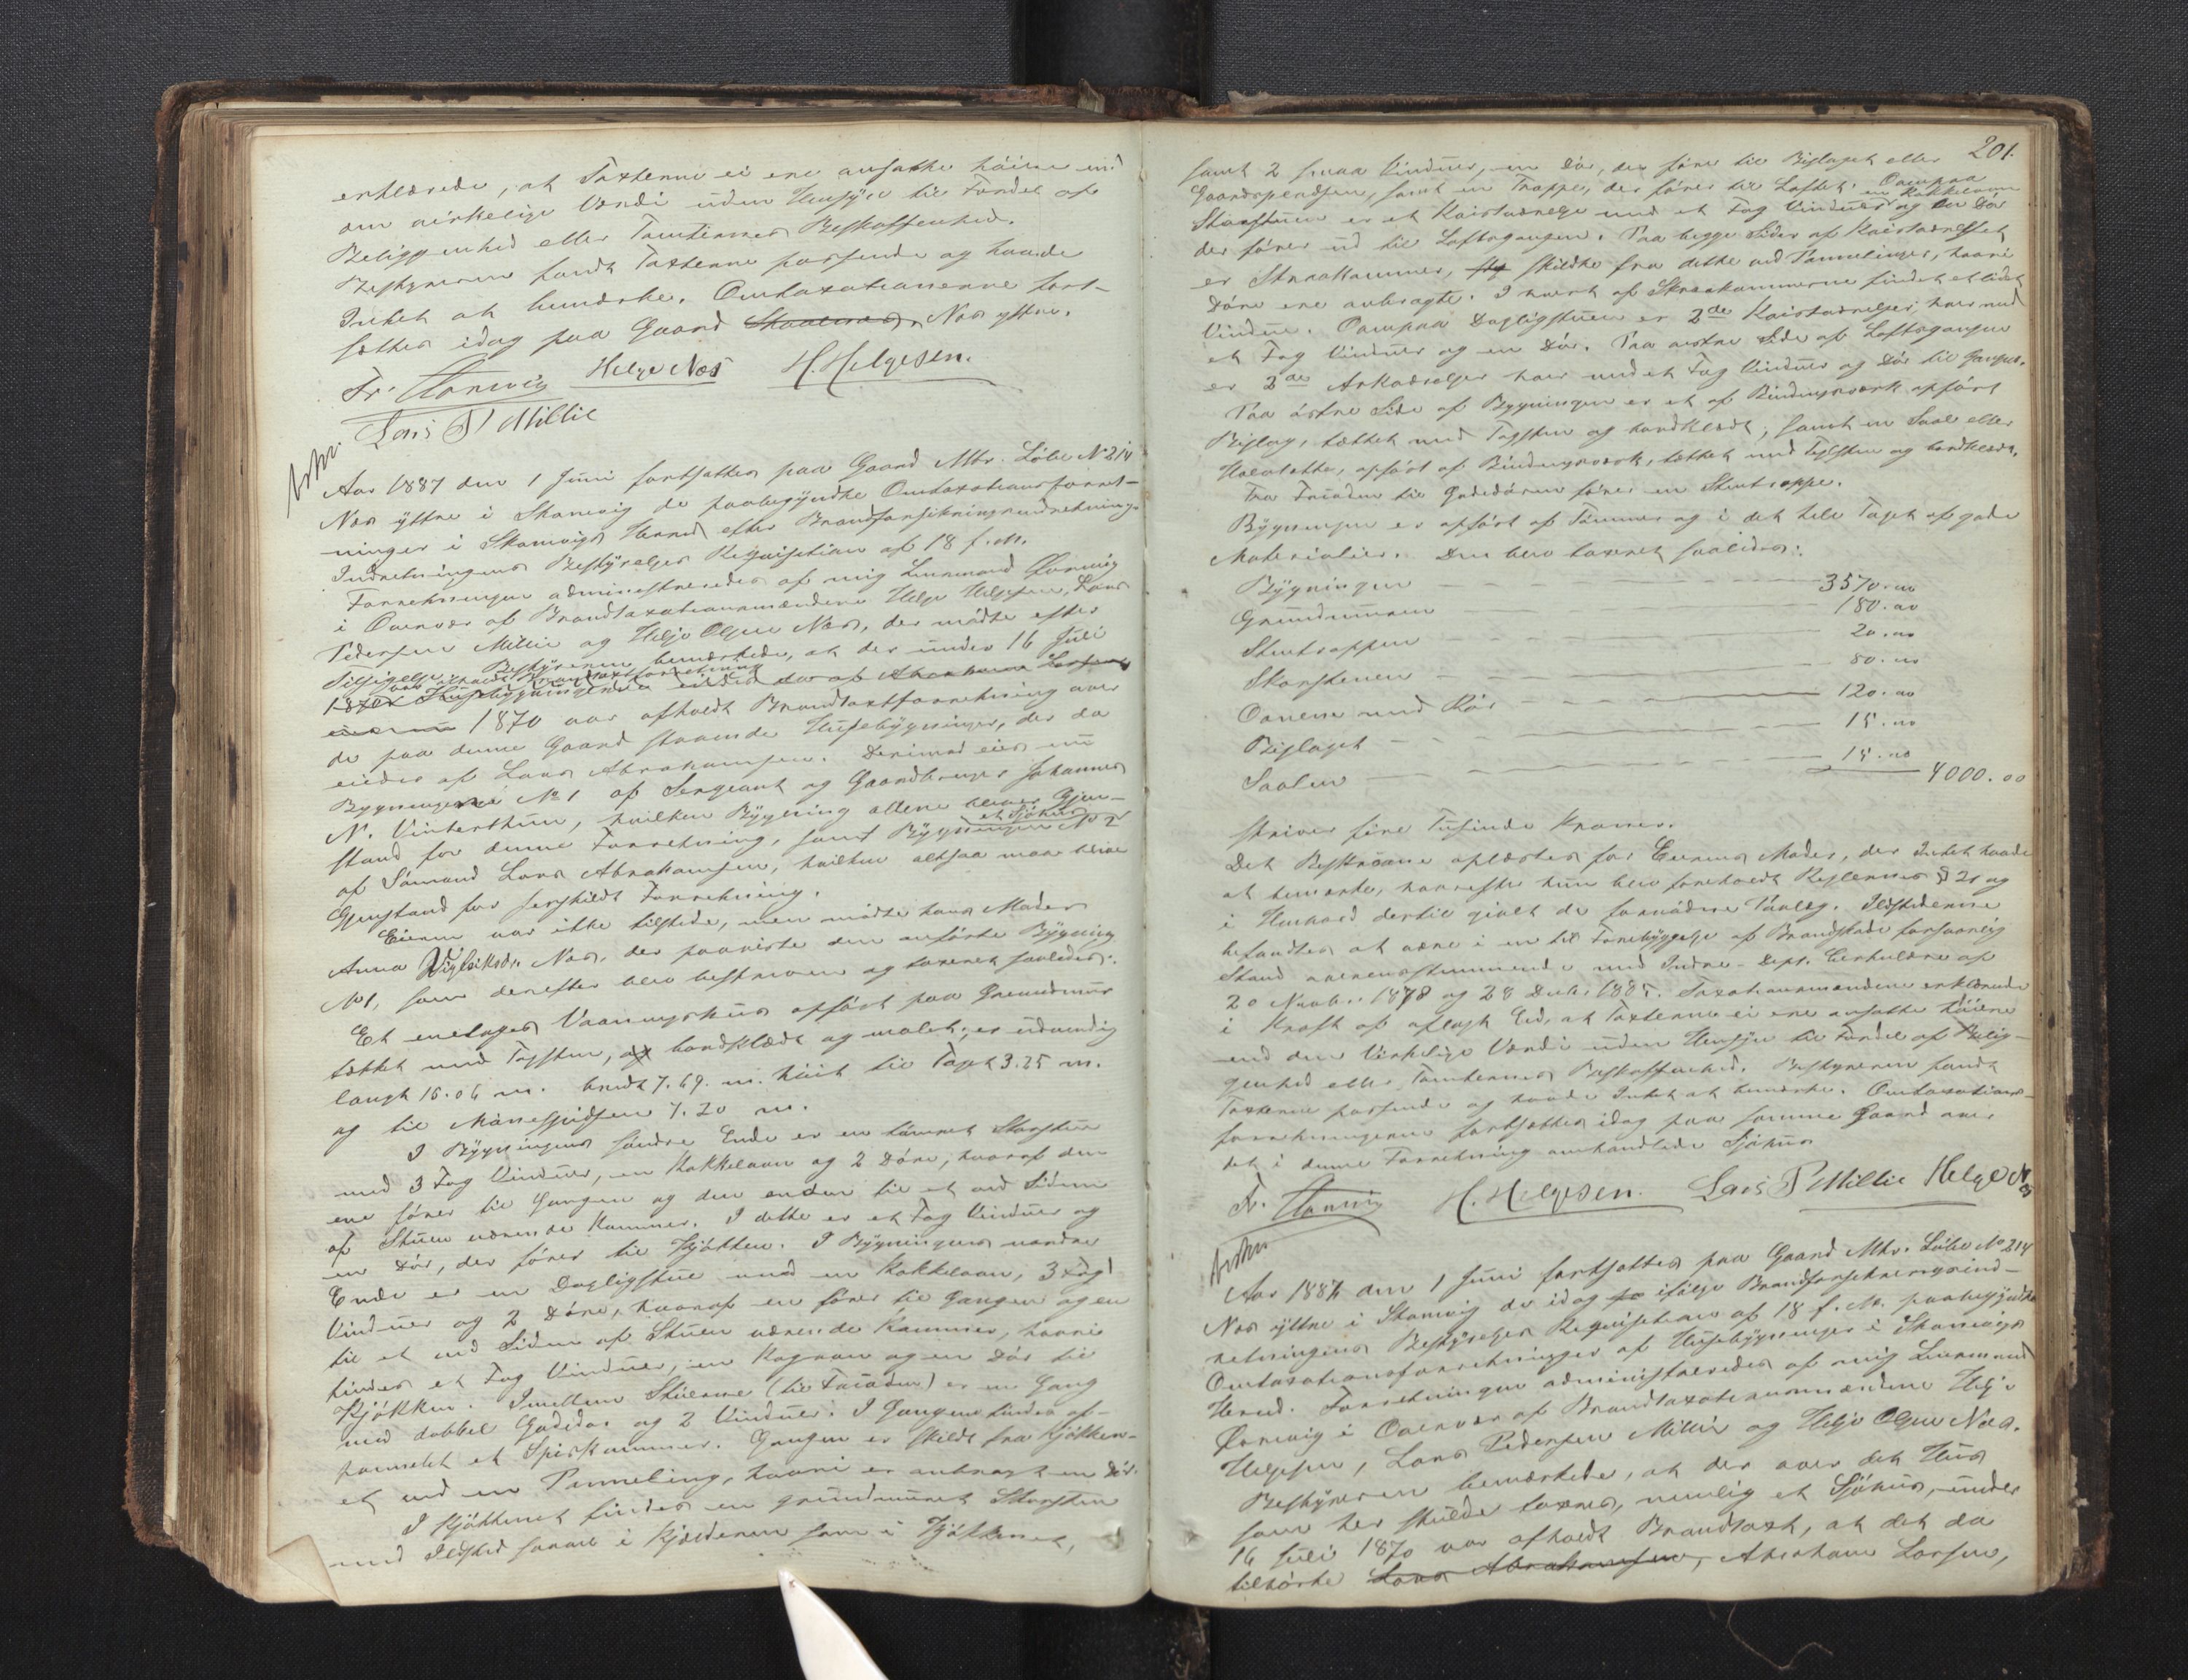 erklærede, at Taxterne ei ere ansatte høiere end
den virkelige Værdi uden Hensyn til Fordel af
Beliggenhed eller Tomternes Beskaffenhed.
Bestyreren fandt Taxterne passende og havde
Intet at bemærke. Omtaxationerne fort-
sættes idag paa Gaard Skaalnes, Næs yttre.
Fr. Helge Næs H. Helgesen.
Lars P Millie
Aar 1887 den 1 Juni fortsattes paa Gaard Mtr. Løbe No 214
Næs yttre i Skonevig de paabegyndte Omtaxationsforret-
ninger i Skonevigs Herred efter Brandforsikringsindretnings
Indretningens Bestyrelses Requisition af 18 f. M.
Forretningen administreredes af mig Lensmand
i Overvær af Brandtaxationsmændene Helge Helgesen, Lars
Pedersen Millie og Helje Olsen Næs, der mødte efter
Tilsigelse. Bestyreren bemærkede, at der under 16 Juli
1870 var afholdt Brandtaxtforretning over
de paa denne Gaard staaende Husebygninger, der da
eiedes af Lars Abrahamsen. Derimod eies nu
Bygningen No 1 af Sergeant og Gaardbruger Johannes
N. Vinterthun, hvilken Bygning allene bliver Gjen-
stand for denne Forretning, samt Bygningen No 2 et Sjøhus
af Sømand Lars Abrahamsen, hvilken altsaa maa blive
Gjenstand for serskildt Forretning.
Eieren var ikke tilstede, men mødte hans Moder
Anna Viglciksdr. Næs, der paaviste den anførte Bygning
No 1, som derefter blev bestreven og taxeret saaledes:
Et enetages Vaaningshus opført paa Grundmur
tættet med Tagsten, og bordklædt og malet, er udvendig
langt 15.06 m. bredt 7.69. m. høit til Taget 3.25 m.
og til Mønespidsen 7.20 m.
I Bygningens søndre Ende er en tømret Storstue
med 3 Fag Vinduer, en Kakkelovn og 2 Døre, hvoraf den
ene fører til Gangen og den anden til et ved Siden
af Stuen værende Kammer. I dette er et Fag Vinduer og
en Dør, der fører til Kjøkken. I Bygningens nordre
Ende er en Dagligstue med en Kakkelovn, 3 Fag
Vinduer og 2 Døre, hvoraf en fører til Gangen og en
til et ved Siden af Stuen værende Kammer, hvori
findes et Fag Vinduer, en Kogeovn og en Dør til
Kjøkken. Imellem Stuerne (til Facaden) er en Gang
med dobbel Gadedør og 2 Vinduer. I Gangen findes af-
pannelet et Spiskammer. Gangen er skildt fra Kjøkken-
et ved en Panneling, hvori er anbragt en Dør.
I Kjøkkenet findes en grundmuret Skorsten
med Ildsted saavel i Kjælderen som i Kjøkkenet,
201.
samt 2 smaa Vinduer, en Dør, der fører til Bislaget eller
Gaardspladsen, samt en Trappe, der fører til Loftet. Ovenpaa
Storstuen er et Kvistværelse med et Fag Vinduer en Kakkelovn og en Dør
der fører ud til Loftsgangen. Paa begge Sider af Kvistværelset
er Straakammer, skildte fra dette ved Pannelinger, hvori
Døre ere anbragte. I hvert af Straakammerne findes et lidet
Vindue. Ovenpaa Dagligstuen er 2de Kvistværelser, hver med
et Fag Vinduer og en Dør. Paa vestre Side af Loftsgangen
er 2de Arkværelser hver med et Fag Vinduer og Dør til Gangen.
Paa østre Side af Bygningen er et af Bindingsværk opført
Bislag, tættet med Tagsten og bordklædt, samt en Sval eller
Halvtækte, opført af Bindingsværk, tættet med Tagsten og bordklædt.
Fra Facaden til Gadedøren fører en Stentrappe.
Bygningen er opført af Tømmer og i det hele Taget af gode
Materialier. Den blev taxeret saaledes:
Bygningen 3570.00
Grundmuren 180.00
Stentrappen 20.00
Skorstenen 80.00
Ovnene med Rør 120.00
Bislaget 15.00
Svalen 15.00 4000.00
skriver fire Tusinde Kroner.
Det Beskrevne oplæstes for Eierens Moder, der Intet havde
at bemærke, hvorefter hun blev foreholdt Reglernes § 21 og
i Henhold dertil gjort de fornødne Paalæg. Ildstederne
befandtes at være i en til Forebyggelse af Brandskade forsvarlig
Stand overensstemmende med Indre-Dept. Cirkulære af
20 Novbr. 1878 og 28 Decbr. 1885. Taxationsmændene erklærede
i Kraft af aflagt Eed, at Taxterne ei ere ansatte høiere
end den Virkelige Værdi uden Hensyn til Fordel af Belig-
genhed eller Tomternes Beskaffenhed. Bestyreren fandt
Taxterne passende og havde Intet at bemærke. Omtaxations-
forretningerne fortsættes idag paa samme Gaard over
det i denne Forretning omhandlede Sjøhus
Fr. H. Helgesen. Lars P Millie Helge Næs
Aar 1887 den 1 Juni fortsattes paa Gaard Mtr. Løbe No 214
Næs yttre i Skonevig de idag ifølge Brandforsikringsind-
retningens Bestyrelses Requisition af 18 f. M. paabegyndte
Omtaxationsforretninger af Husebygninger i Skonevigs
Herred. Forretningen administreredes af mig Lensmand
i Overvær af Brandtaxationsmændene Helje
Helgesen, Lars Pedersen Millie og Helje Olsen Næs.
Bestyreren bemærkede, at der over det Hus
som her skulde taxeres, nemlig et Sjøhus, under
16 Juli 1870 var afholdt Brandtaxt, at det da
tilhørte Lars Abrahamsen, Abraham Larsen,